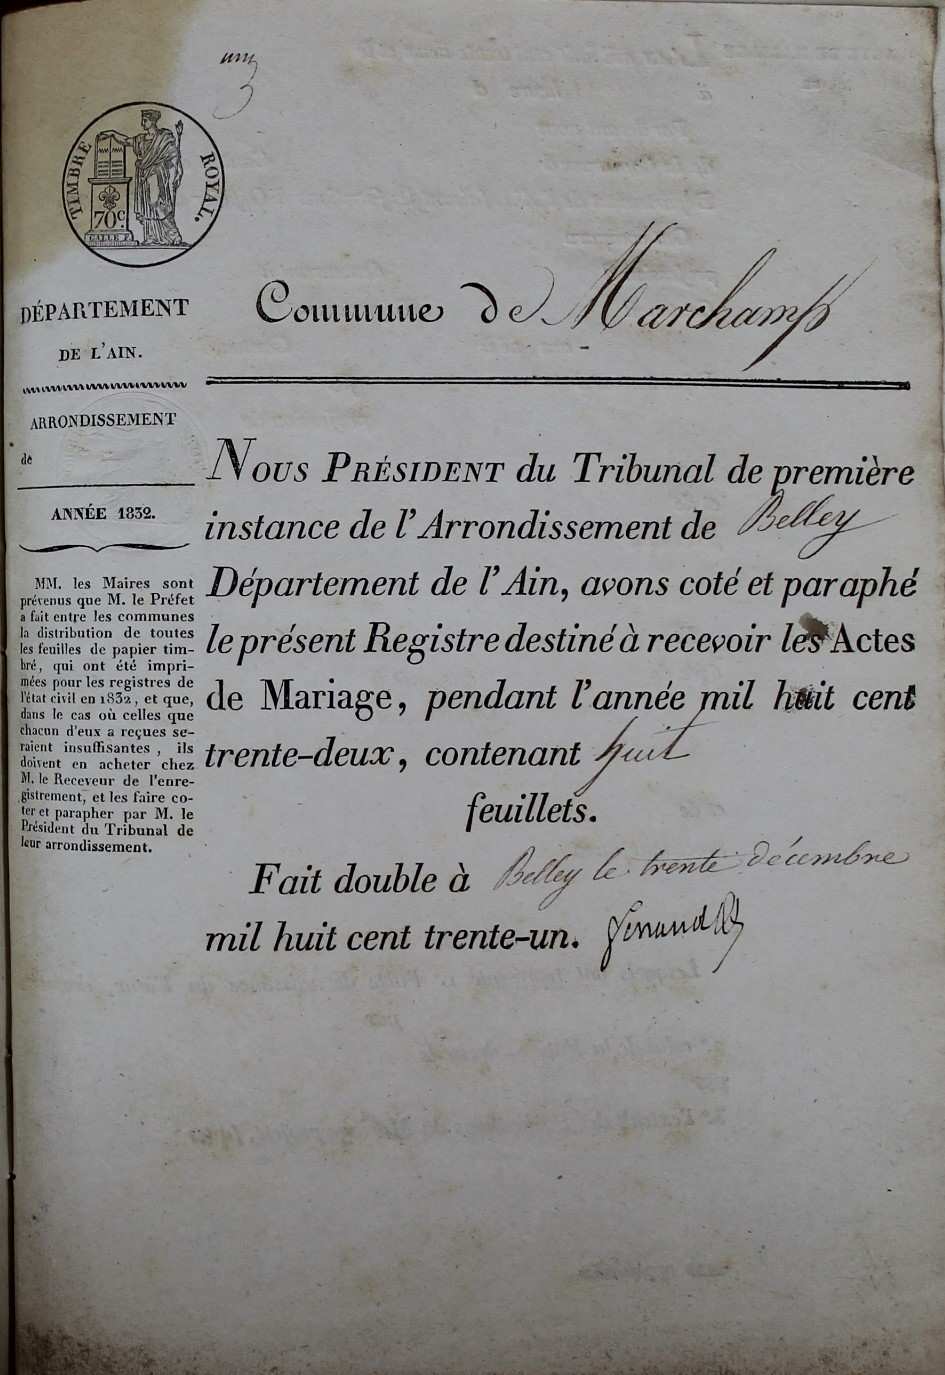 TIMBRE ROYAL.
70c.
DÉPARTEMENT
DE L'AIN.
ARRONDISSEMENT
de
ANNÉE 1832.
MM. les Maires sont
prévenus que M. le Préfet
a fait entre les communes
la distribution de toutes
les feuilles de papier tim-
bré, qui ont été impri-
mées pour les registres de
l'état civil en 1832, et que,
dans le cas où celles que
chacun d'eux a reçues se-
raient insuffisantes, ils
doivent en acheter chez
M. le Receveur de l'enre-
gistrement, et les faire co-
ter et parapher par M. le
Président du Tribunal de
leur arrondissement.
Commune de Marchamp
NOUS PRÉSIDENT du Tribunal de première
instance de l'Arrondissement de Belley
Département de l'Ain, avons coté et paraphé
le présent Registre destiné à recevoir les Actes
de Mariage, pendant l'année mil huit cent
trente-deux, contenant huit
feuillets.
Fait double à Belley le trente décembre
mil huit cent trente-un.